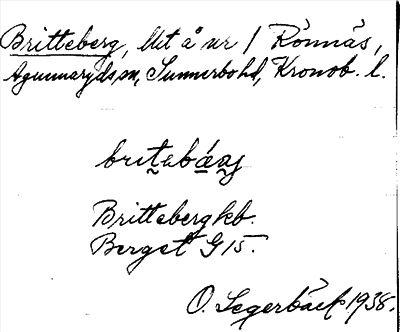 Britteberg, lht å nr 1 Rönnås,
Agunnaryds sn, Sunnerbo hd, Kronob. l.
britabárj
Britteberg kb.
Berget G 15.
O. Segerbäck 1938.